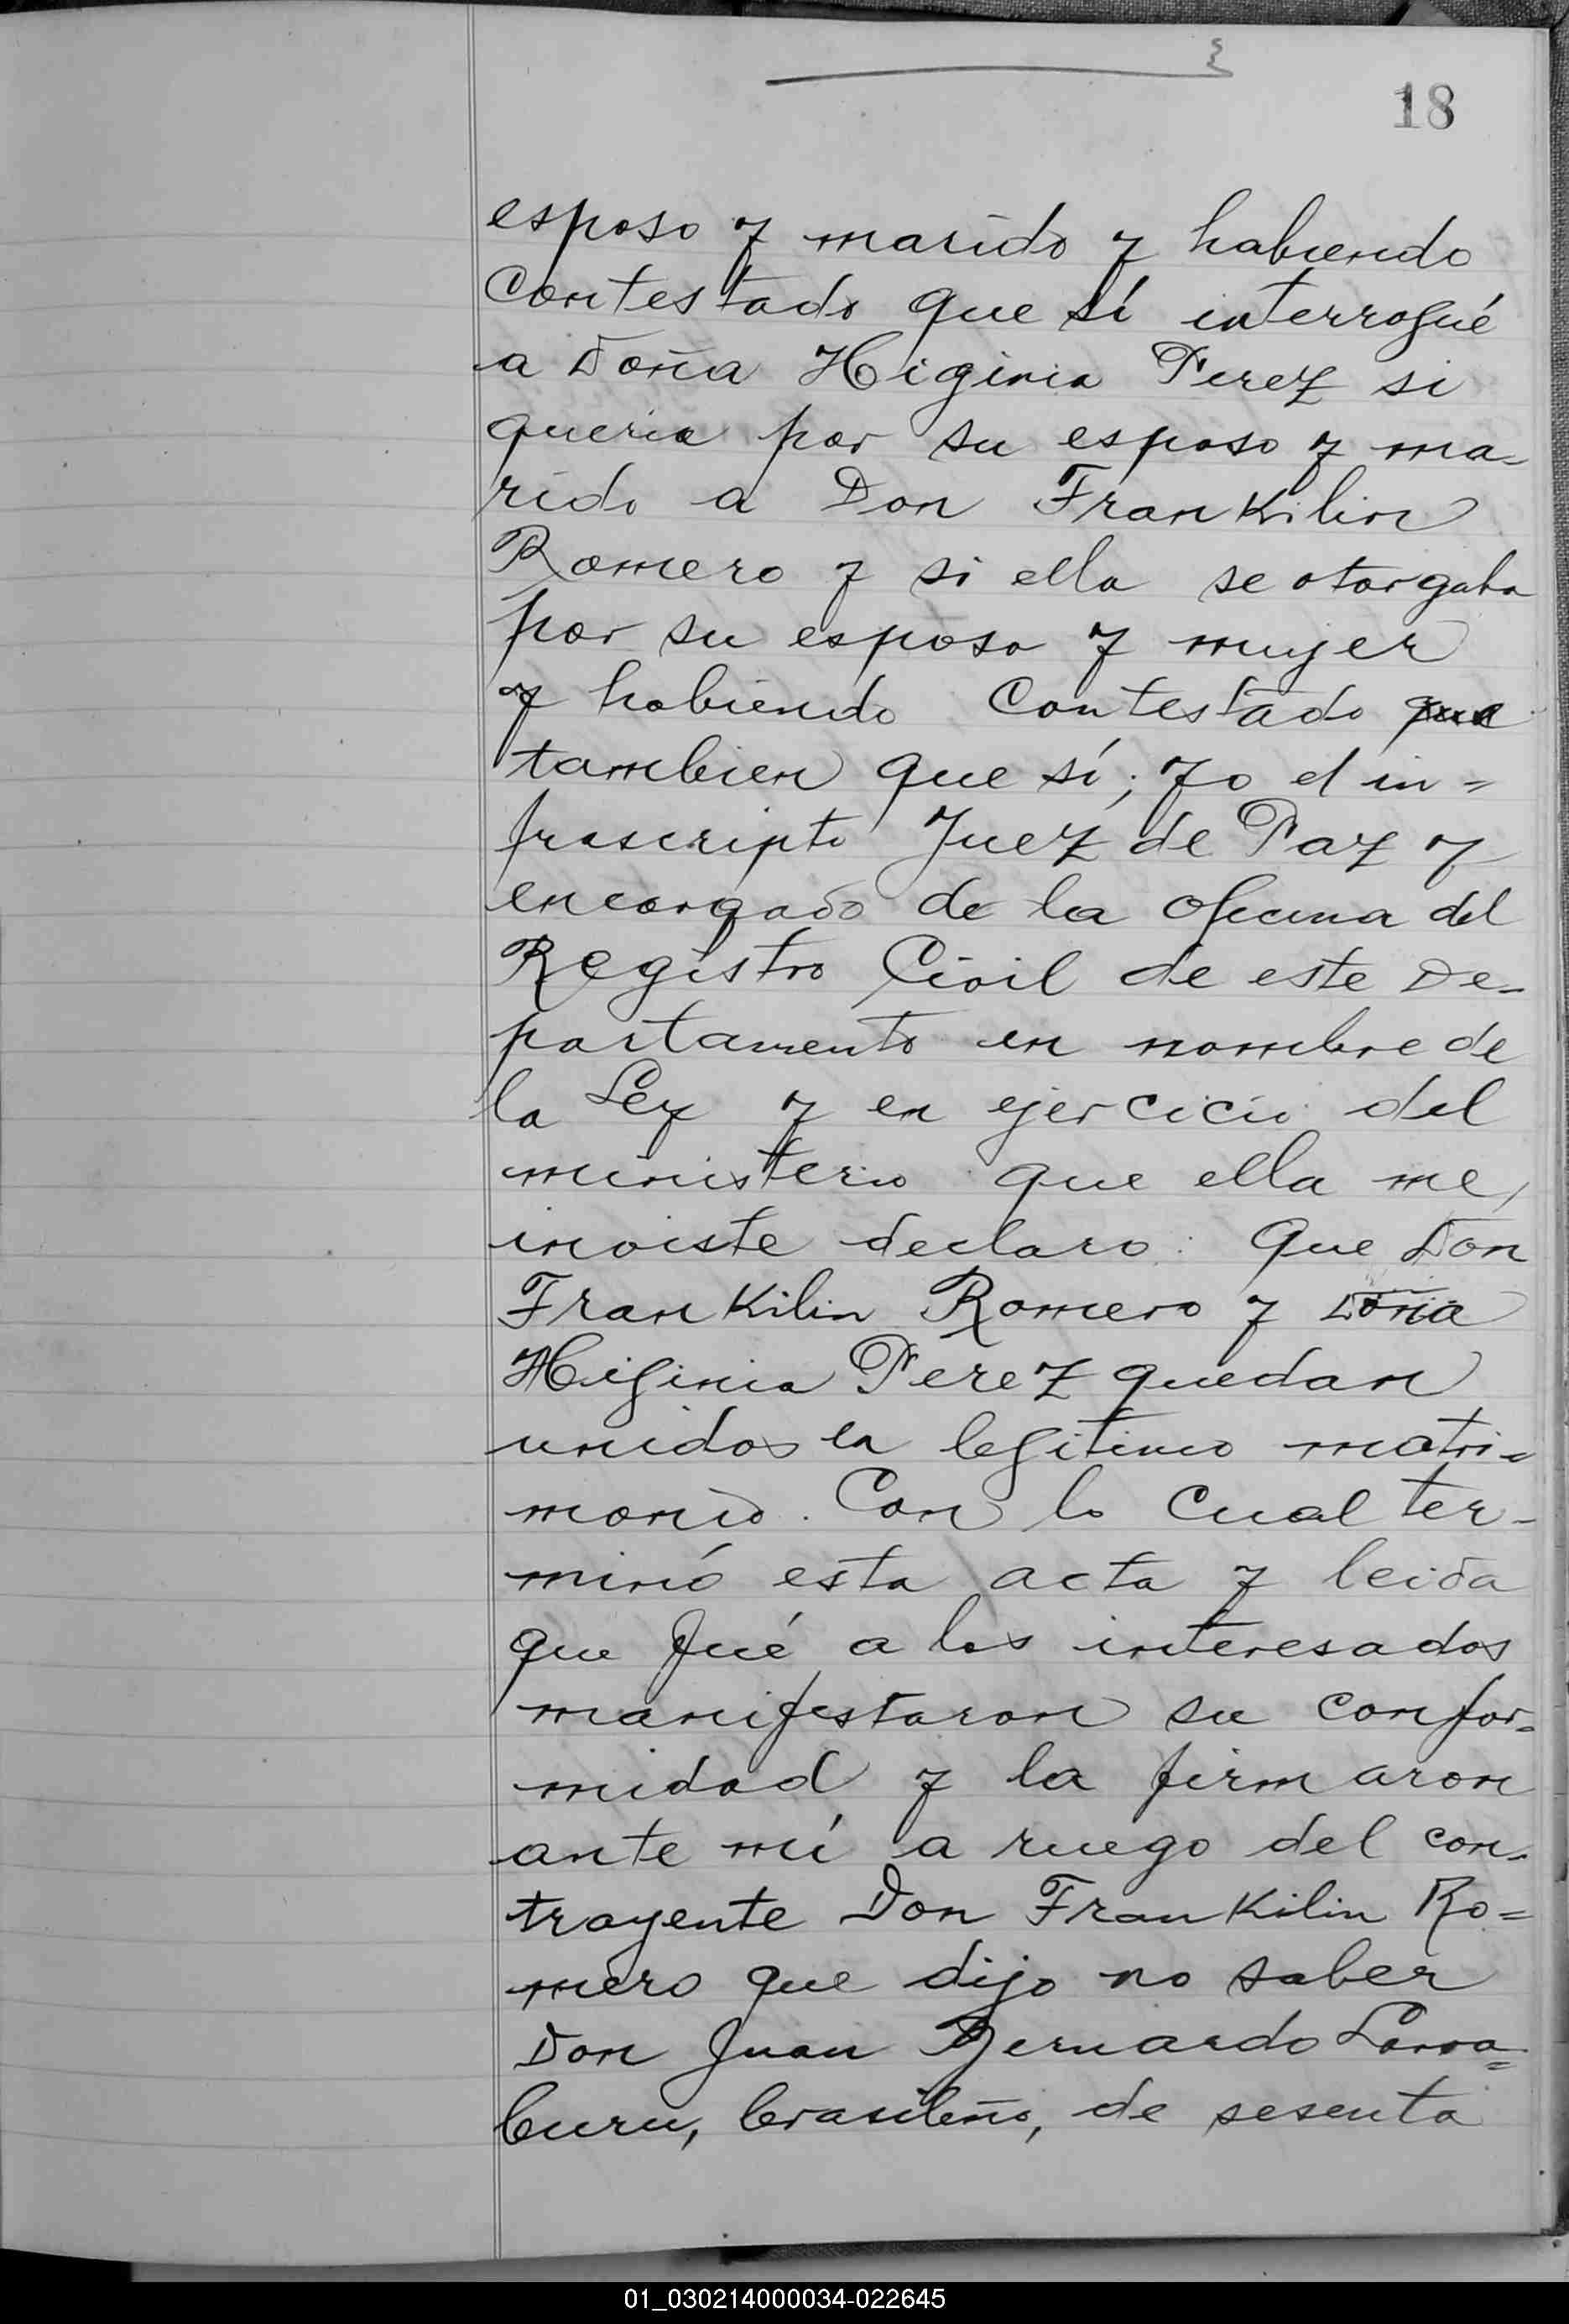 18
esposo y marido y habiendo
contestado que sí interrogué
a Doña Higinia Perez si
queria por su esposo y ma-
rido a Don Frankilin
Romero y si ella se otorgaba
por su esposa y mujer
y habiendo contestado que
tambien que sí; yo el in=
frascripto Juez de Paz y
encargado de la oficina del
Registro Civil de este De-
partamento en nombre de
la Ley y en ejercicio del
ministerio que ella me
inviste declaro: Que Don
Frankilin Romero y Doña
Higinia Perez quedan
unidos en legitimo matri-
monio. Con lo cual ter-
minó esta acta y leida
que fué a los interesados
manifestaron su confor-
midad y la firmaron
ante mí a ruego del con-
trayente Don Frankilin Ro=
mero que dijo no saber
Don Juan Bernardo Larra=
buru, brasileño, de sesenta
01_030214000034-022645